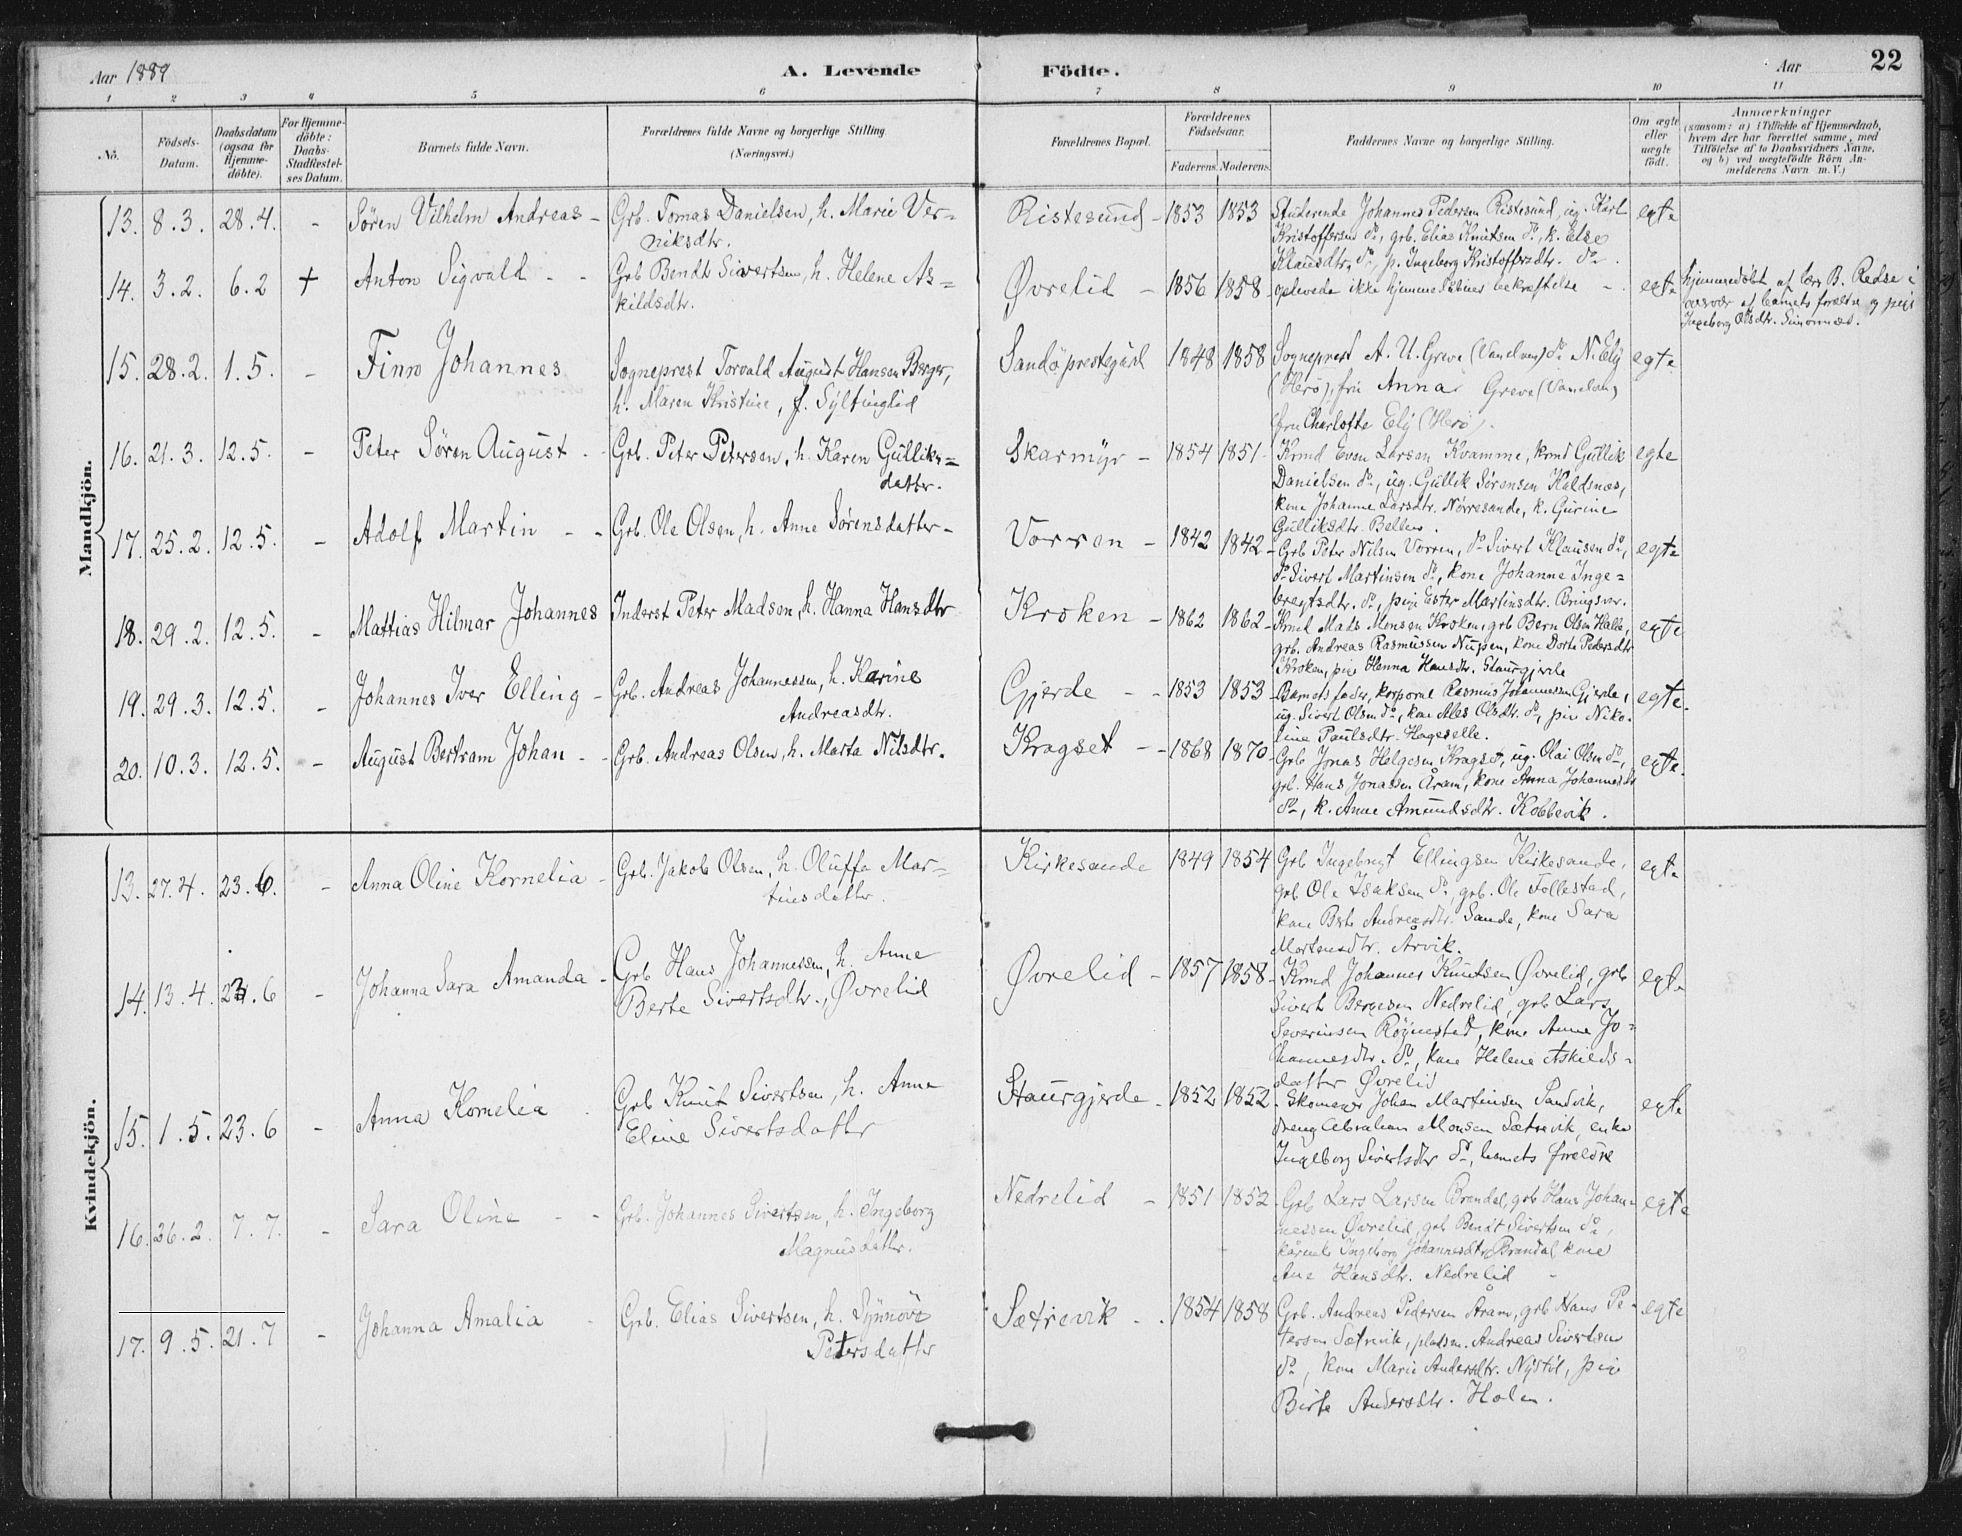 Aar 1889
A. Levende
Födte.
Aar
22
1 2 3 4 5 6 7 8 9 10 11
No.
Födsels-
Datum.
Daabsdatum
(ogsaa for
Hjemme-
döbte).
For Hjemme-
döbte:
Daabs-
Stadfæstel-
ses Datum.
Barnets fulde Navn.
Forældrenes fulde Navne og borgerlige Stilling.
(Næringsvei.)
Forældrenes Bopæl.
Forældrenes
Födselsaar.
Faderens. Moderens.
Faddernes Navne og borgerlige Stilling.
Om ægte
eller
uægte
födt.
Anmærkninger
(saasom: a) i Tilfælde af Hjemmedaab,
hvem der har forrettet samme, med
Tilföielse af to Daabsvidners Navne,
og b) ved uægtefödte Börn An-
melderens Navn m. V.)
Mandkjön.
13. 8.3. 28.4. - Søren Vilhelm Andreas - Grb. Tomas Danielsen, h. Marie Ver=
niksdtr.
Ristesund - 1853 1853 Studerende Johannes Pedersen Ristesund, ug. Karl
Kristoffersen do, grb. Elias Knutsen do, k. Else
Klausdtr. do, p. Ingeborg Kristoffersdtr. do.
egte
14. 3.2. 6.2 + Anton Sigvald - - Grb Bendt Sivertsen, h. Helene As=
kildsdtr.
Øvrelid - 1856 1858 - oplevede ikke hjemmedåbens bekræftelse - . egte
hjemmedøbt af lær. B. Redse i
overvær af barnets forældre og pige
Ingeborg Olsdtr.
15. 28.2. 1.5. - Finn Johannes Sogneprest Torvald August Hansen Berger,
h. Maren Kristine, f. Syltinglid
Sandø prestegård 1848 1858 Sogneprest A. U. Greve (Vanelven) do N. Ely
(Herø), fru Anna Greve (Vanelven)
fru Charlotte Ely (Herø).
egte
16. 21.3. 12.5. - Peter Søren August - Grb. Peter Petersen, h. Karen Gulliks=
datter.
Skarmyr - 1854 1851 - Krmd Even Larsen Kvamme, krmd Gullik
Danielsen do, ug. Gullik Sørensen Haldsnæs,
kone Johanne Larsdtr. Nørresande, k. Gurine
Gulliksdtr.
egte
17. 25.2. 12.5. - Adolf Martin - - Grb. Ole Olsen, h. Anne Sørensdatter -
Vorren - 1842 1842 - Grb Peter Nilsen Vorren, do Sivert Klausen do,
do Sivert Martinsen do, kone Johanne Inge=
bregtsdtr. do, pige Ester Martinsdtr. Bringsvor.
egte
18. 29.2. 12.5. - Mattias Hilmar Johannes Inderst Peter Madsen, h. Hanna Hansdtr
Kroken - 1862 1862 - Krmd Mads Monsen Kroken, grb Bern Olsen Halle,
grb. Andreas Rasmussen Nupen, kone Dorte Pedersdtr
Kroken, pige Hanna Hansdtr. Staurgjerde
egte
19. 29.3. 12.5. - Johannes Iver Elling - Grb. Andreas Johannessen, h. Karine
Andreasdtr.
Gjerde - - 1853 1853 - Barnets fader, korporal Rasmus Johannessen Gjerde,
ug. Sivert Olsen do, kone Ales Olsdtr. do, pige Niko-
line Paulsdtr. Hageselle.
egte.
20. 10.3. 12.5. - August Bertram Johan - - Grb. Andreas Olsen, h. Marta Nilsdtr.
Kragset - - 1868 1870 - Grb Jonas Helgesen Kragset, ug. Olai Olsen do,
grb. Hans Jonassen Åram, kone Anna Johannesdtr
do, k. Anne Amundsdtr. Kobbevik.
egte.
Kvindekjön.
13. 27.4. 23.6. - Anna Oline Kornelia - Grb. Jakob Olsen, h. Oluffa Mar=
tinsdatter.
Kirkesande 1849 1854 Grb Ingebrigt Ellingsen Kirkesande,
grb Ole Isaksen do, grb. Ole Follestad,
kone Berte Andreasdtr. Sande, kone Sara
Mortensdtr. Årvik.
egte
14. 13.4. 23.6 - Johanna Sara Amanda - Grb Hans Johannessen, h. Anne
Berte Sivertsdtr., Øvrelid
Øvrelid - 1857 1858 - Krmd Johannes Knutsen Øvrelid, grb
Sivert Bergesen Nedrelid, grb Lars
Severinsen Røynestad, kone Anne Jo=
hannesdtr. do, kone Helene Askilds=
datter Øvrelid
egte
15. 1.5. 23.6 - Anna Kornelia . Grb Knut Sivertsen, h. Anne
Eline Sivertsdatter
Staurgjerde - 1852 1852 - Skomager Johan Martinsen Sandvik,
dreng Abraham Monsen Sætrevik, enke
Ingeborg Sivertsdtr do, barnets foreldre
egte
16. 26.2. 7.7. - Sara Oline - - Grb. Johannes Sivertsen, h. Ingeborg
Magnusdatter.
Nedrelid - 1851 1852 - Grb Lars Larsen Brandal, grb Hans Johan-
nessen Øvrelid, grb Bendt Sivertsen do,
Ingeborg Johannesdtr Brandal, kone
Ane Hansdtr. Nedrelid -
egte
17. 9.5. 21.7 - Johanna Amalia - Grb. Elias Sivertsen, h. Synnøve
Petersdatter
Sætrevik - . 1854 1858 Grb. Andreas Pedersen Åram, grb Hans Pe-
tersen Sætrevik, pladsm. Andreas Sivertsen
do, kone Marie Andersdtr. Nystøl, pige
Birte Andersdtr. Holen.
egte